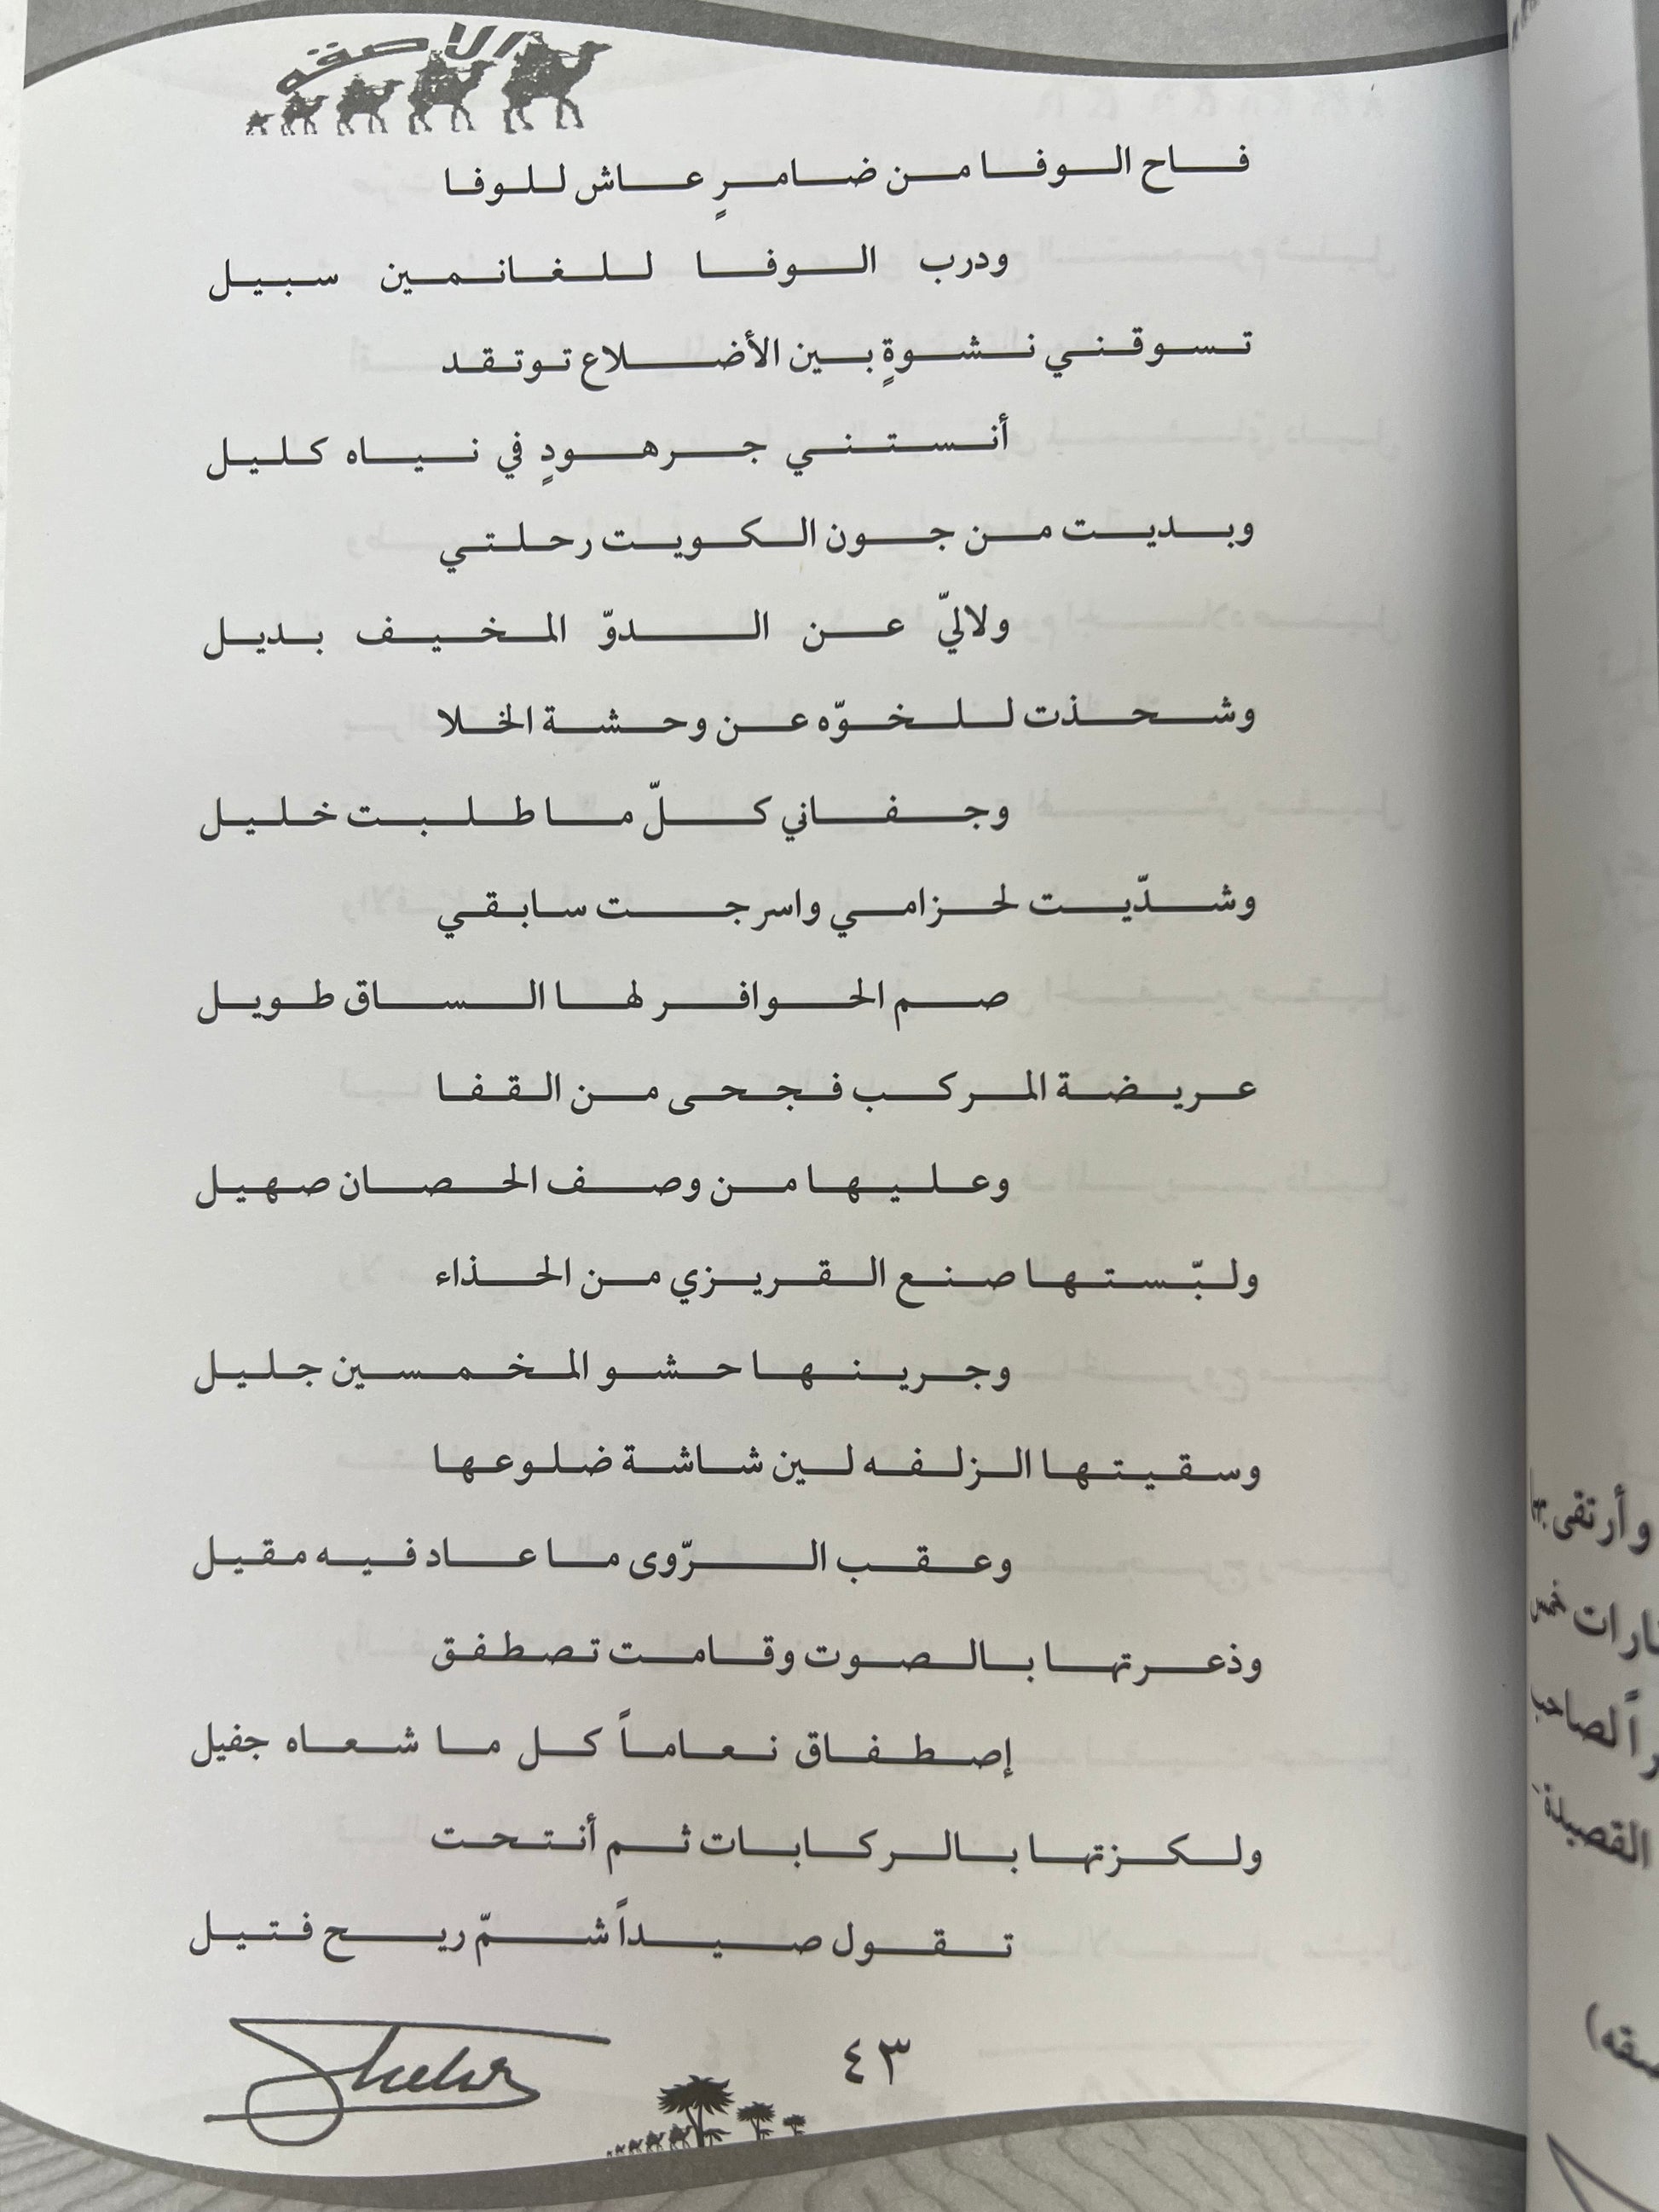 الاصقه
فاح الوفا من ضامرٍ عاش للوفا
ودرب الوفا للغانمين سبيل
تسوقني نشوةٍ بين الأضلاع توتقد
أنستني جرهودٍ في نياه كليل
وبديت من جون الكويت رحلتي
ولاليّ عن الدوّ المخيف بديل
وشحذت للخوّه عن وحشة الخلا
وجفاني كلّ ما طلبت خليل
وشدّيت لحزامي واسرجت سابقي
صم الحوافر لها الساق طويل
عريضة المركب فجحى من القفا
وعليها من وصف الحصان صهيل
ولبّستها صنع القريزي من الحذاء
وجرينها حشو المخمسين جليل
وسقيتها الزلفه لين شاشة ضلوعها
وعقب الرّوى ما عاد فيه مقيل
وذعرتها بالصوت وقامت تصطفق
إصطفاق نعاماً كل ما شعاه جفيل
ولكزتها بالركابات ثم أنتحت
تقول صيداً شمّ ريح فتيل
٤٣
وأرتقى
القصيدة